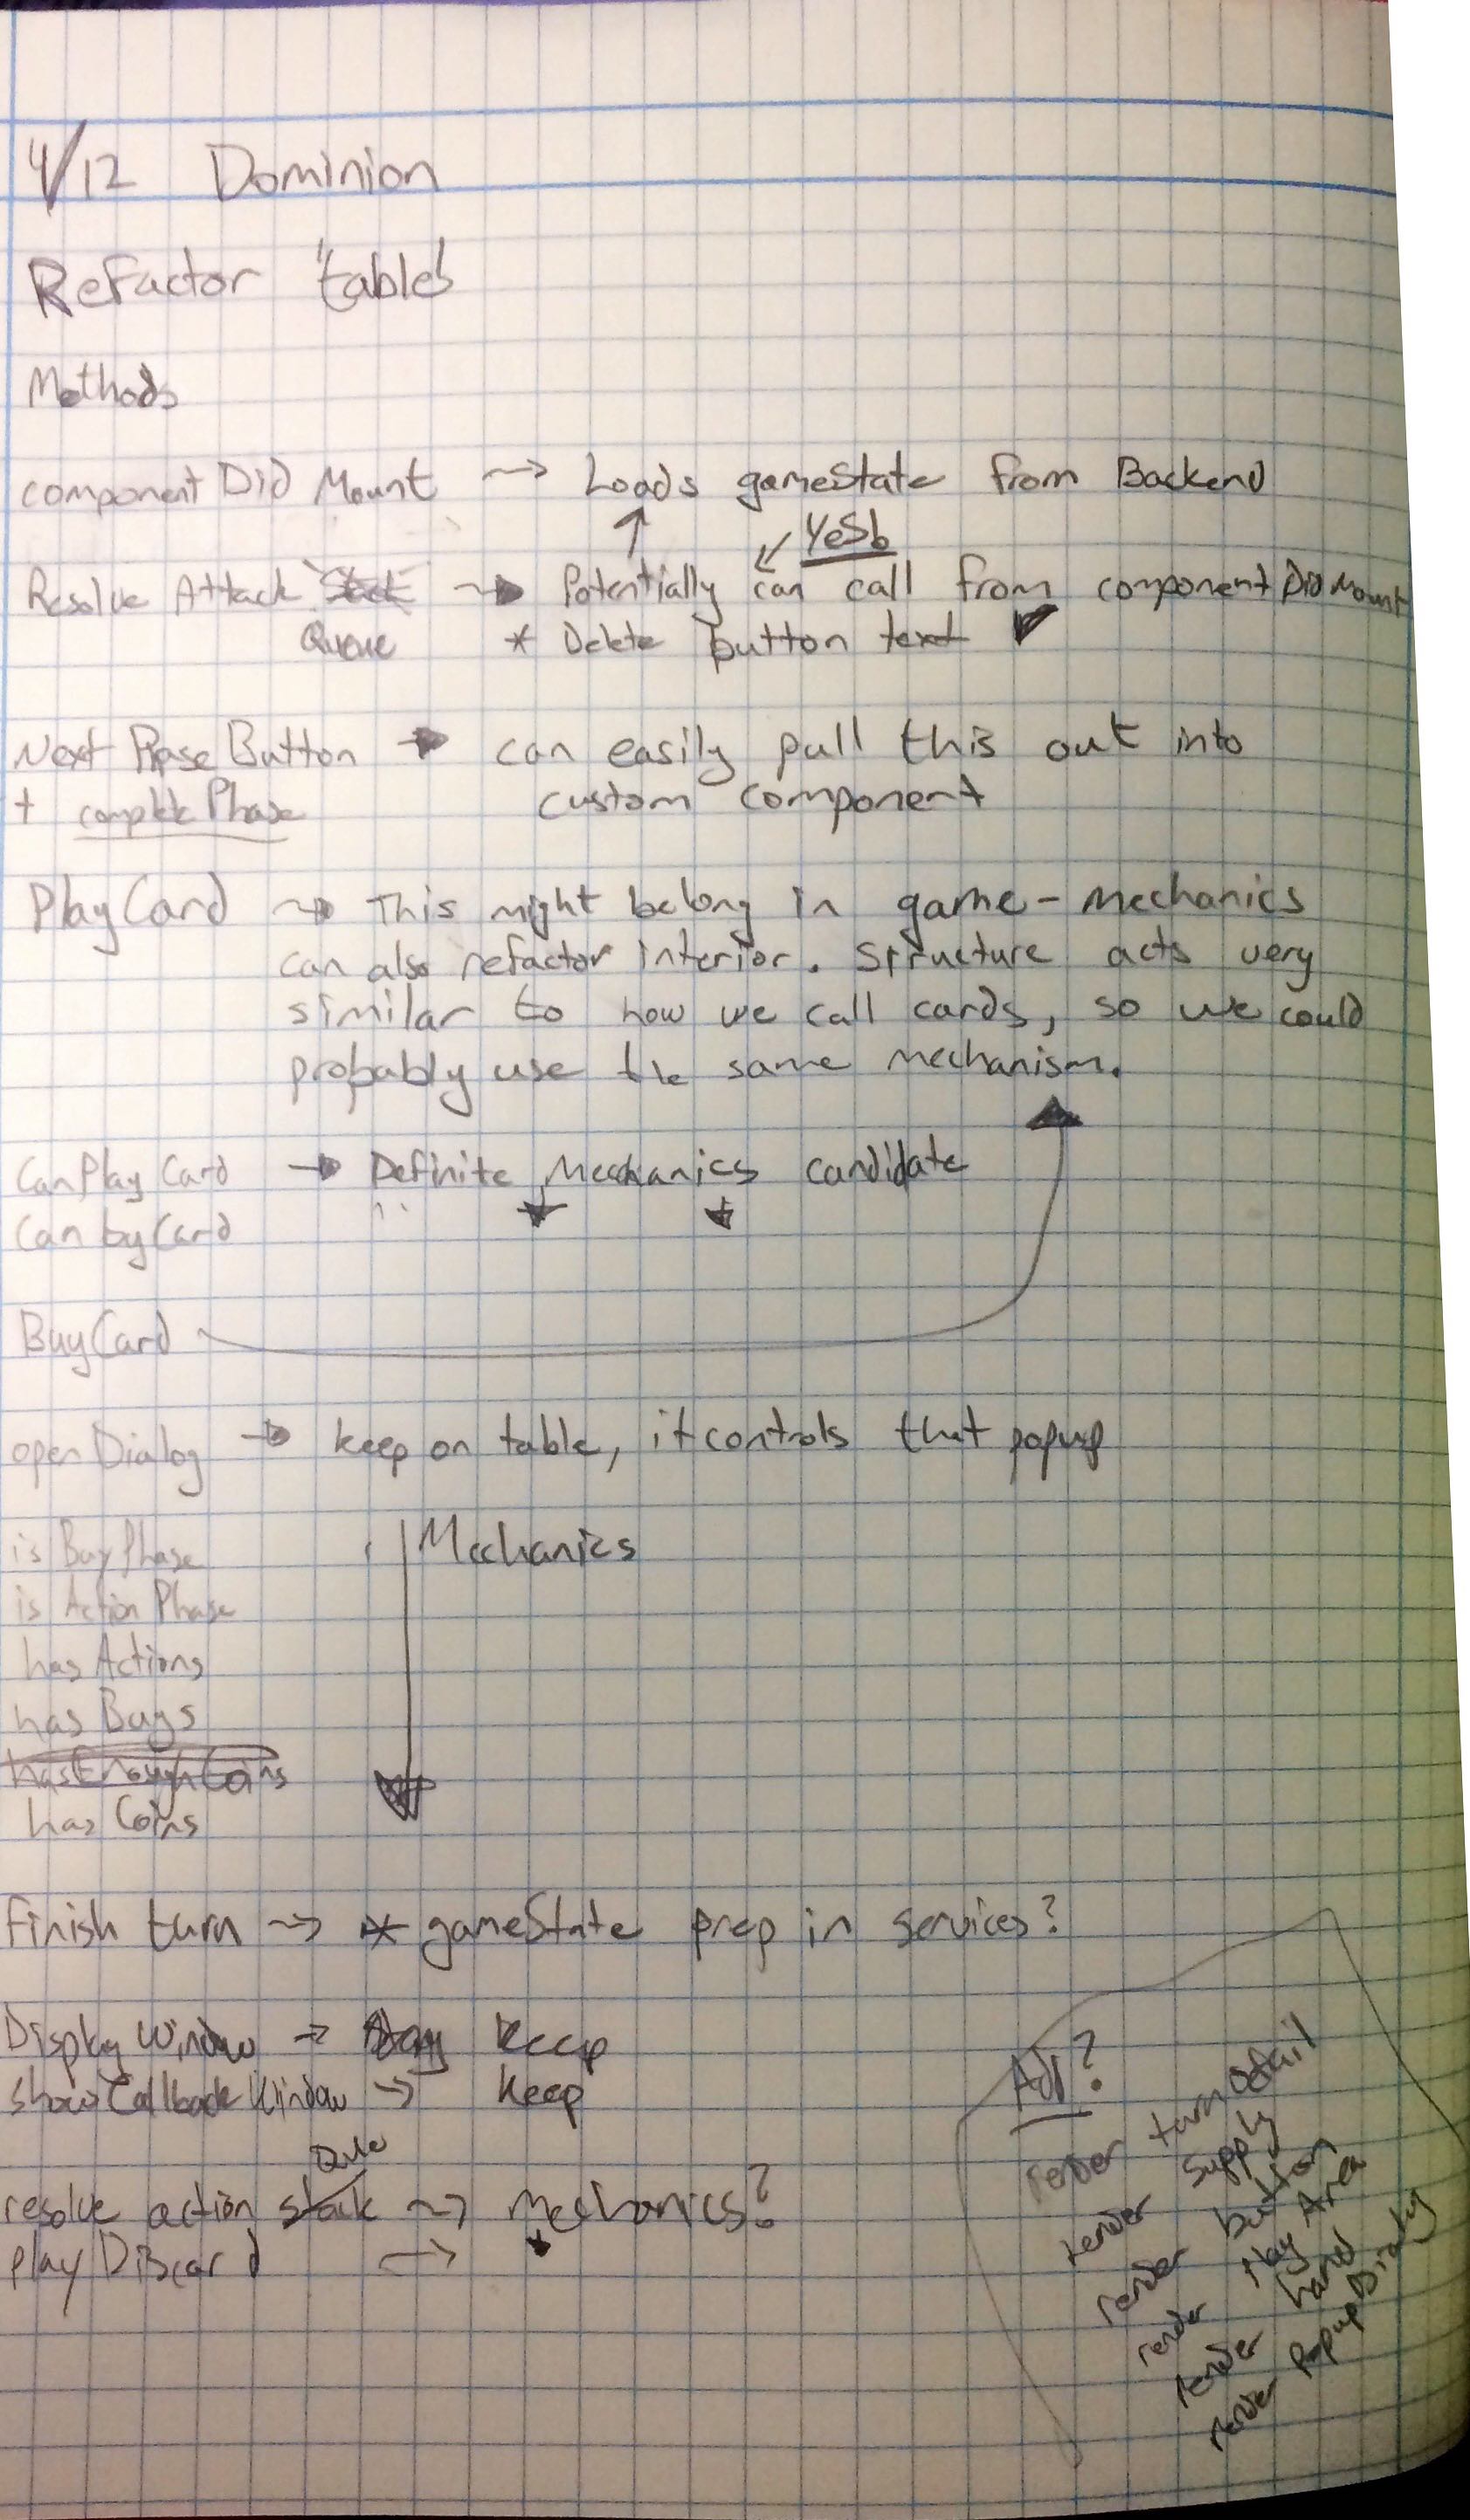 4/12 Dominion
Refactor "table"
Methods
componentDidMount → Loads gameState from Backend
Yes!
Resolve Attack Stack → Potentially can call from componentDidMount
Queue * Delete button text ✓
Next PhaseButton → can easily pull this out into
+ completePhase custom component
PlayCard → This might belong in game-mechanics
can also refactor interior. Structure acts very
similar to how we call cards, so we could
probably use the same mechanism.
CanPlayCard → Definite Mechanics candidate
CanbyCard
BuyCard
openDialog → keep on table, it controls that popup
isBuyPhase Mechanics
isActionPhase
hasActions
hasBuys
hasEnoughCoins
hasCoins
Finish turn → * gameState prep in services?
DisplayWindow → Stay keep
showCallbackWindow → keep
resolve action stack → Mechanics?
play DiScard →
render turn Detail
render Supply
render button
render Play Area
render hand
render PopupDialog